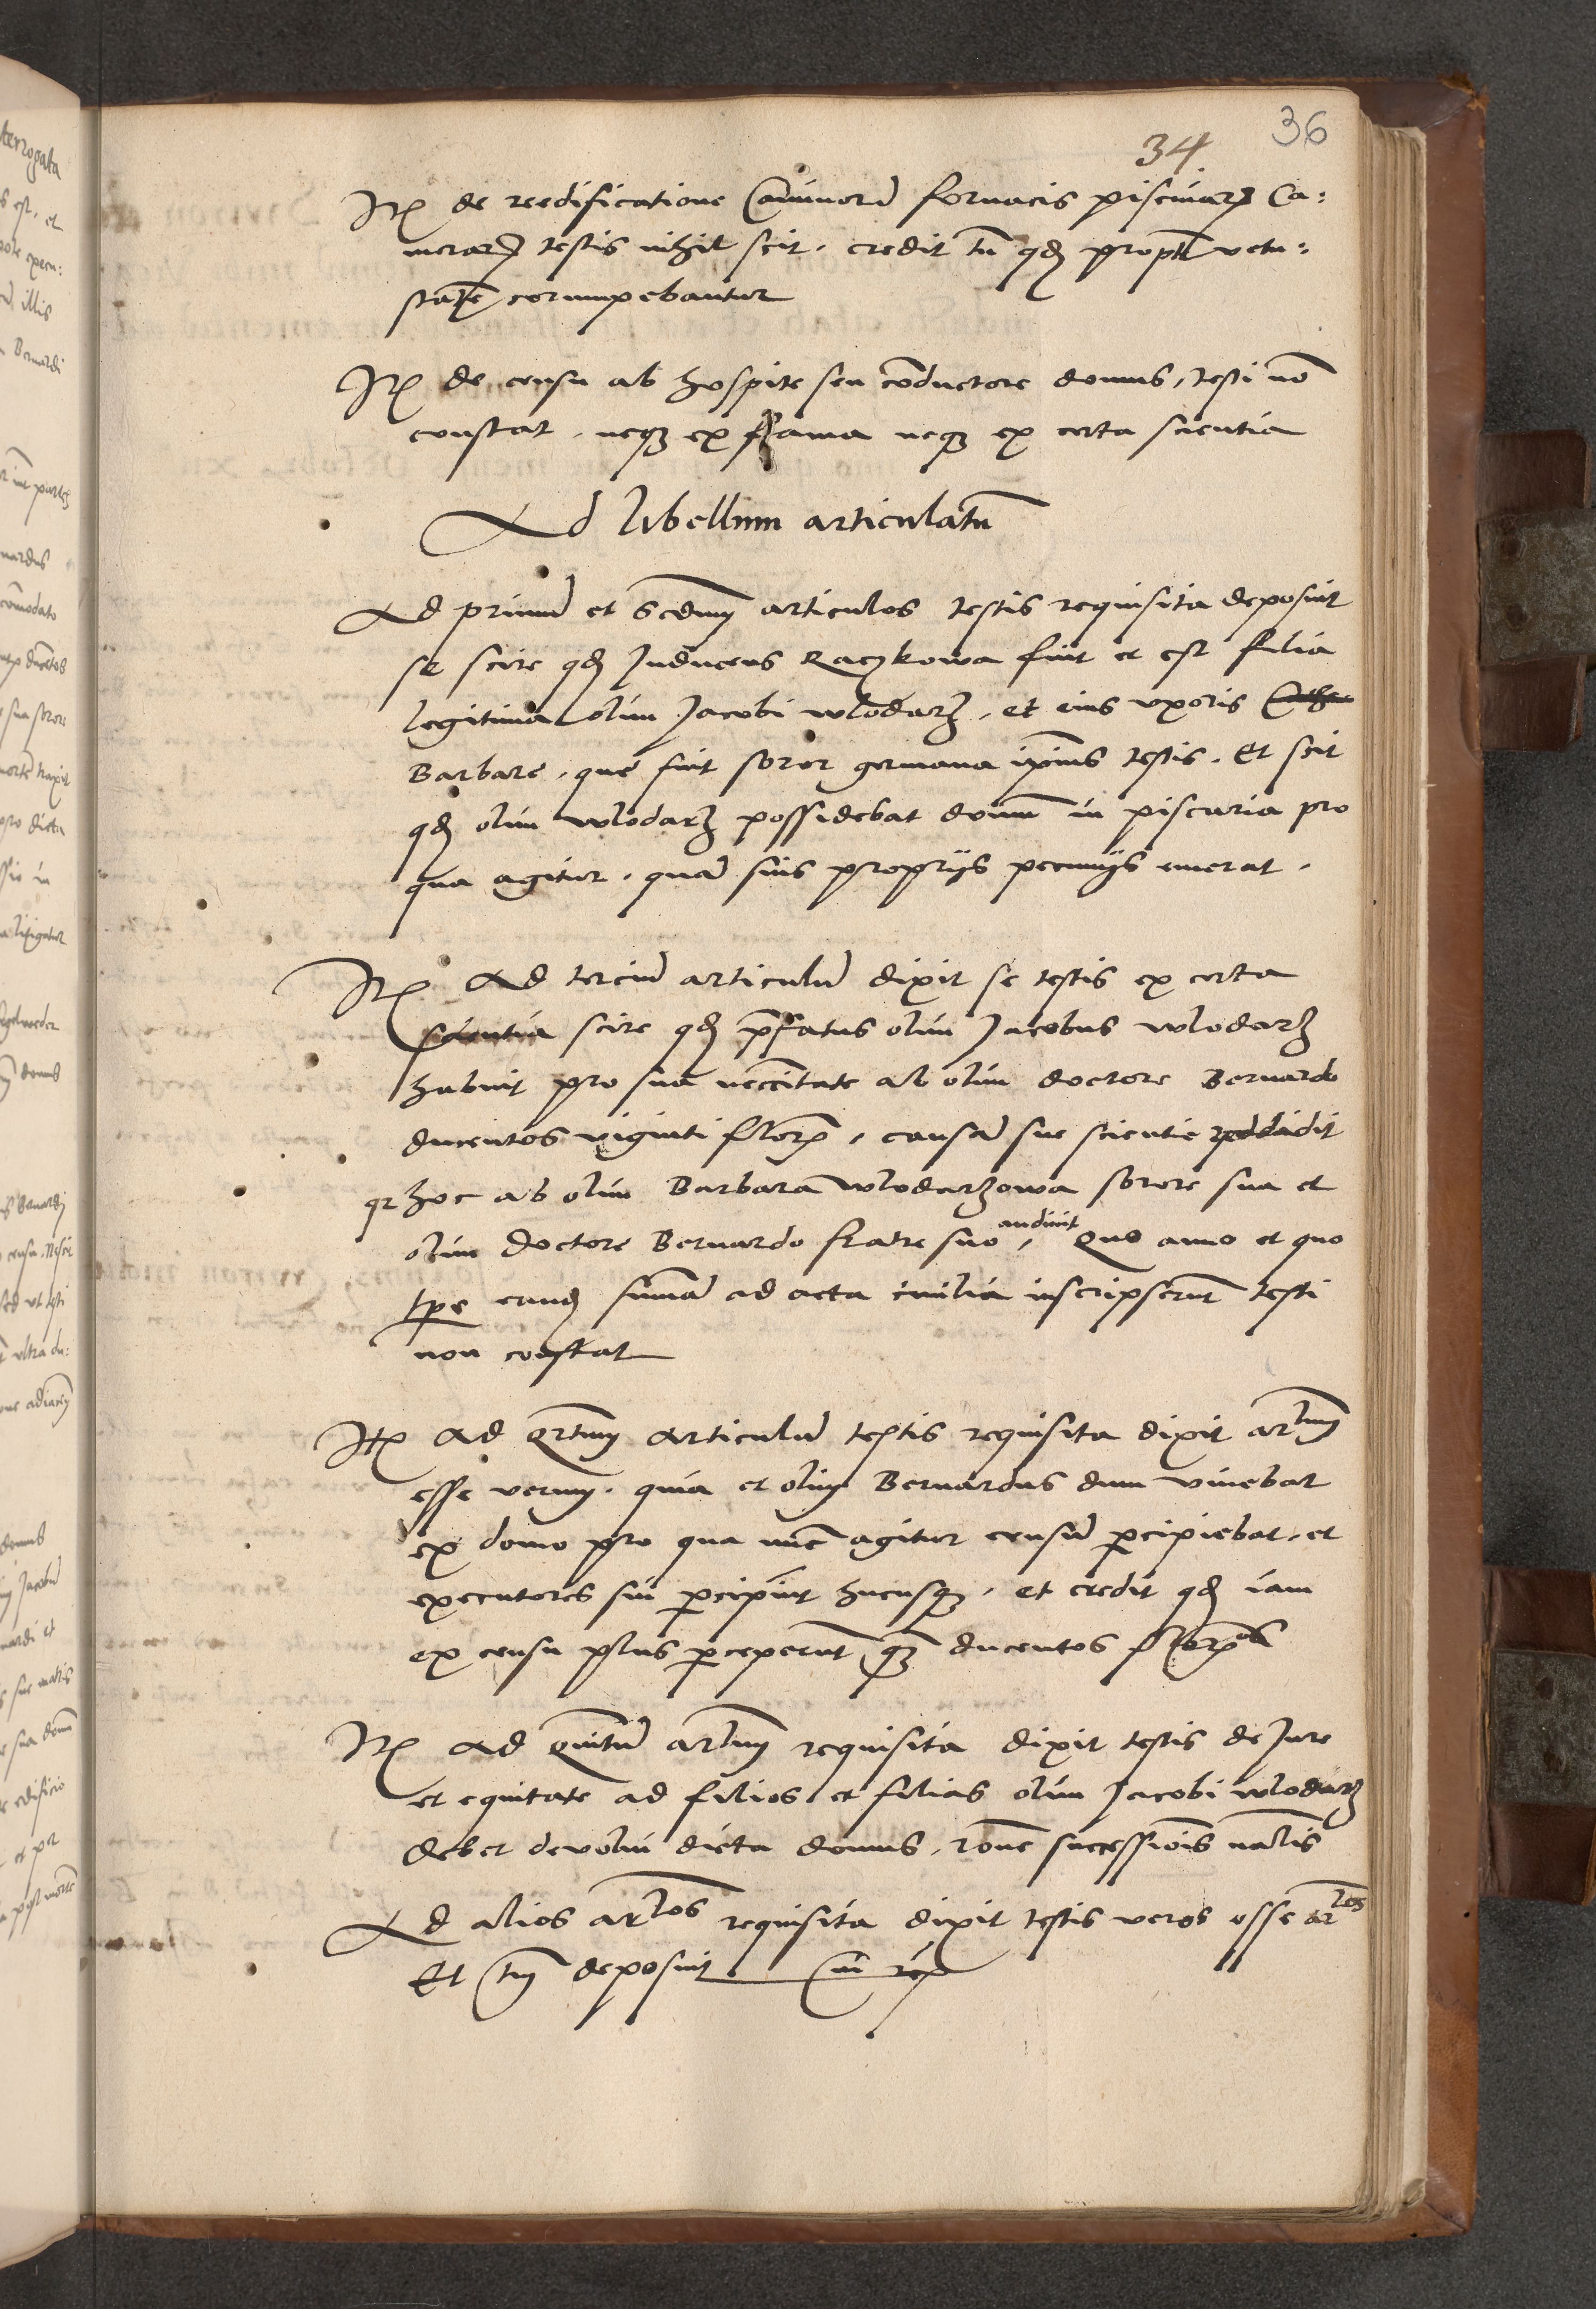 36
34
Itē de reedificatione Caminorū fornacis pisciuarꝫ Ca:
merarꝫ testis nihil scit. credit tn̄ qđ propt vetu:
statē corrumpebantur
Itē de censu ab hospite seu cōductore domus, testi nō
constat, neqꝫ ex fama neqꝫ ex certa scientia
Ad libellum articulatū
Ad primū et scdm̄ articulos testis requisita deposuit
se scire qđ Inducens Raczkowa fuit et est filia
legitima olim Jacobi wlodarz, et eius vxoris
Barbare, que fuit soror germana ipius testis. Et scit
qđ olim wlodarz possidebat domū in piscaria pro
qua agitur, quā suis proprijs pecunijs emerat.
Itē Ad terciū articulū dixit se testis ex certa
scientia scire qđ p̄fatus olim Jacobus wlodarz
habuit pro sua necc̄itate ab olim doctore Bernardo
ducentos viginti floren̄, causā sue scientie reddidit
qr hoc ab olim Barbara wlodarzowa sorore sua et
olim doctore Bernardo fratre suo, audiuit Quo anno et quo
tpe eand̄ sūmā ad acta ciuilia inscripserūt testi
non constat
Itē Ad qrtum articulū testis requisita dixit artlm̄
esse verum, quia et olim Bernardus dum viuebat
ex domo pro qua nūc agitur censū p̄cipiebat, et
executores sui p̄cipiūt hucusqꝫ, et credit qđ iam
ex censu plus p̄ceperūt qꝫ ducentos florenos
Itē ad Quintū artlm̄ requisita dixit testis de Jure
et equitate ad filios et filias olim Jacobi wlodarz
debet deuolui dicta domus, rōne successiōis nālis
Ad alios artlos requisita dixit testis veros esse artlos
Et tm̄ deposuit